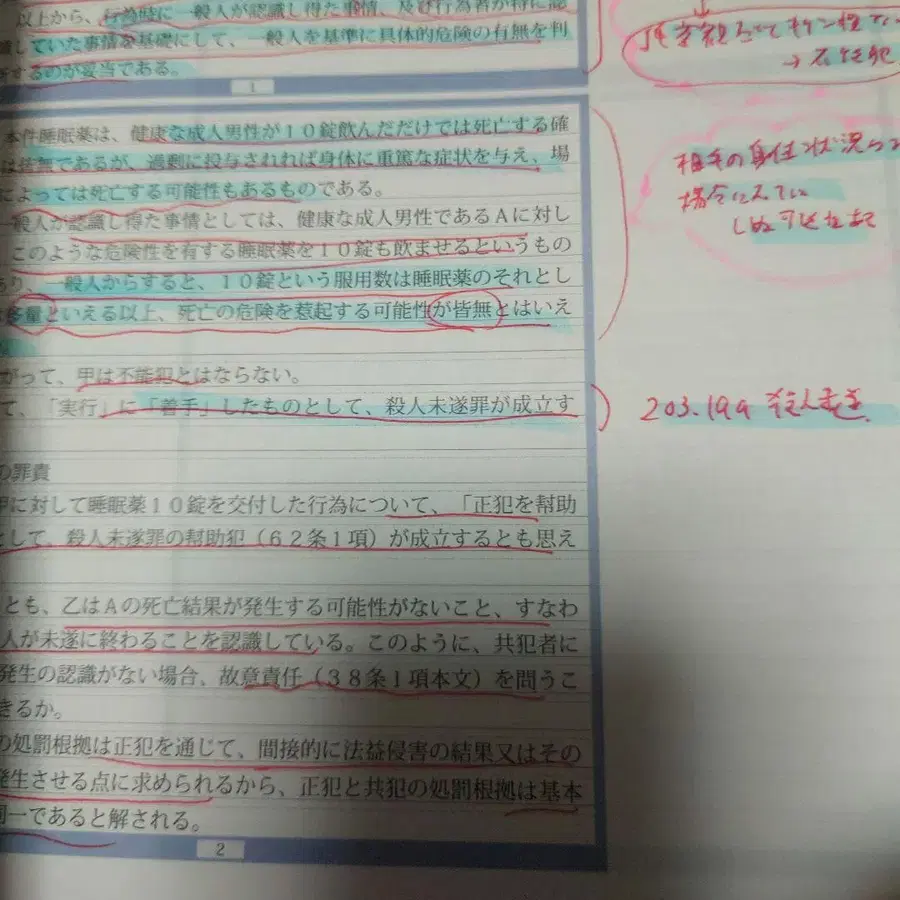 以上から、行為時に一般人が認識し得た事情、及び行為者が特に認
識していた事情を基礎にして、一般人を基準に具体的危険の有無を判
するのが妥当である。
1
本件睡眠薬は、健康な成人男性が10錠飲んだだけでは死亡する確
は皆無であるが、過剰に投与されれば身体に重篤な症状を与え、場
によっては死亡する可能性もあるものである。
一般人が認識し得た事情としては、健康な成人男性であるAに対し
このような危険性を有する睡眠薬を10錠も飲ませるというもの
あり、一般人からすると、10錠という服用数は睡眠薬のそれとし
多量といえる以上、死亡の危険を惹起する可能性が皆無とはいえ
がって、甲は不能犯とはならない。
て、「実行」に「着手」したものとして、殺人未遂罪が成立す
の罪責
甲に対して睡眠薬10錠を交付した行為について、「正犯を幇助
として、殺人未遂罪の幇助犯(62条1項)が成立するとも思え
とも、乙はAの死亡結果が発生する可能性がないこと、すなわ
人が未遂に終わることを認識している。このように、共犯者に
発生の認識がない場合、故意責任(38条1項本文)を問うこ
きるか。
の処罰根拠は正犯を通じて、間接的に法益侵害の結果又はその
発生させる点に求められるから、正犯と共犯の処罰根拠は基本
同一であると解される。
2
→不能犯
相手の身体状況
場合によてい
203.199 殺人未遂